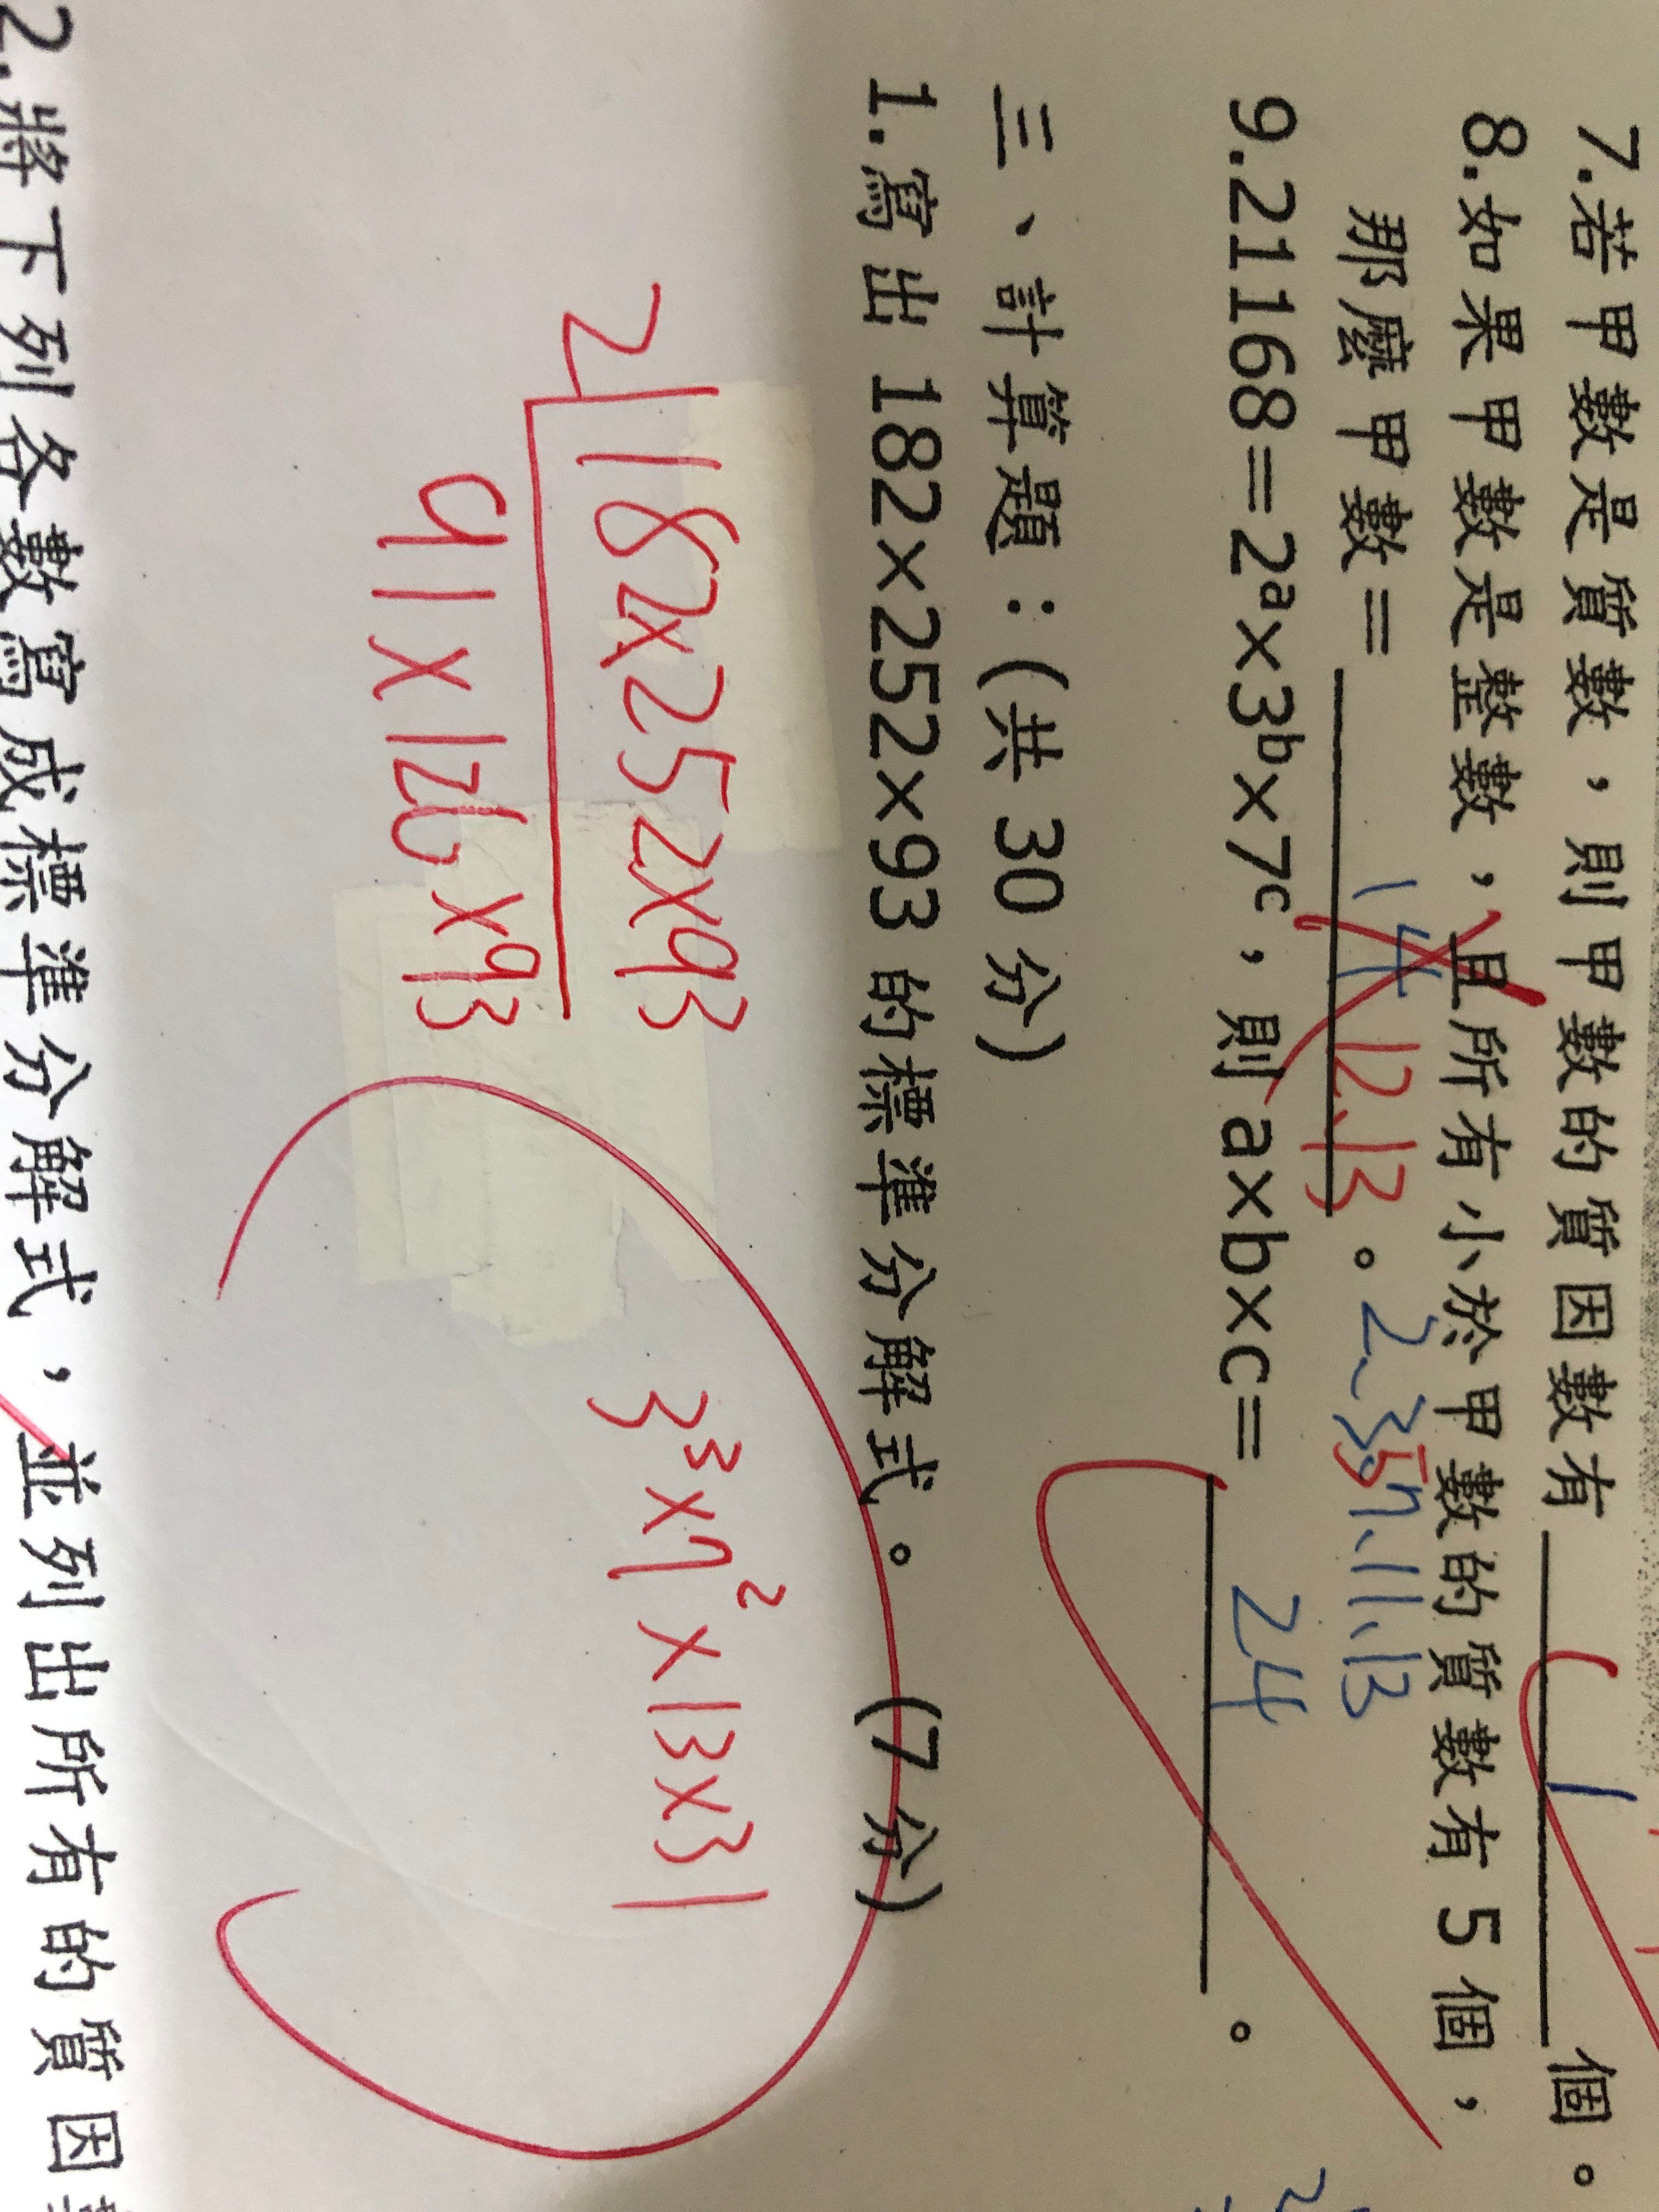 7.若甲數是質數，則甲數的質因數有 1 個。
8.如果甲數是整數，且所有小於甲數的質數有 5 個，
那麼甲數= 14 12.13 。2.3 5 7.11.13
9.21168=2ᵃ×3ᵇ×7ᶜ，則 a×b×c= 24 。
三、計算題：(共 30 分)
1.寫出 182×252×93 的標準分解式。 (7 分)
2 182x252x93 3³x7²x13x31
91x126x93
2.將下列各數寫成標準分解式，並列出所有的質因